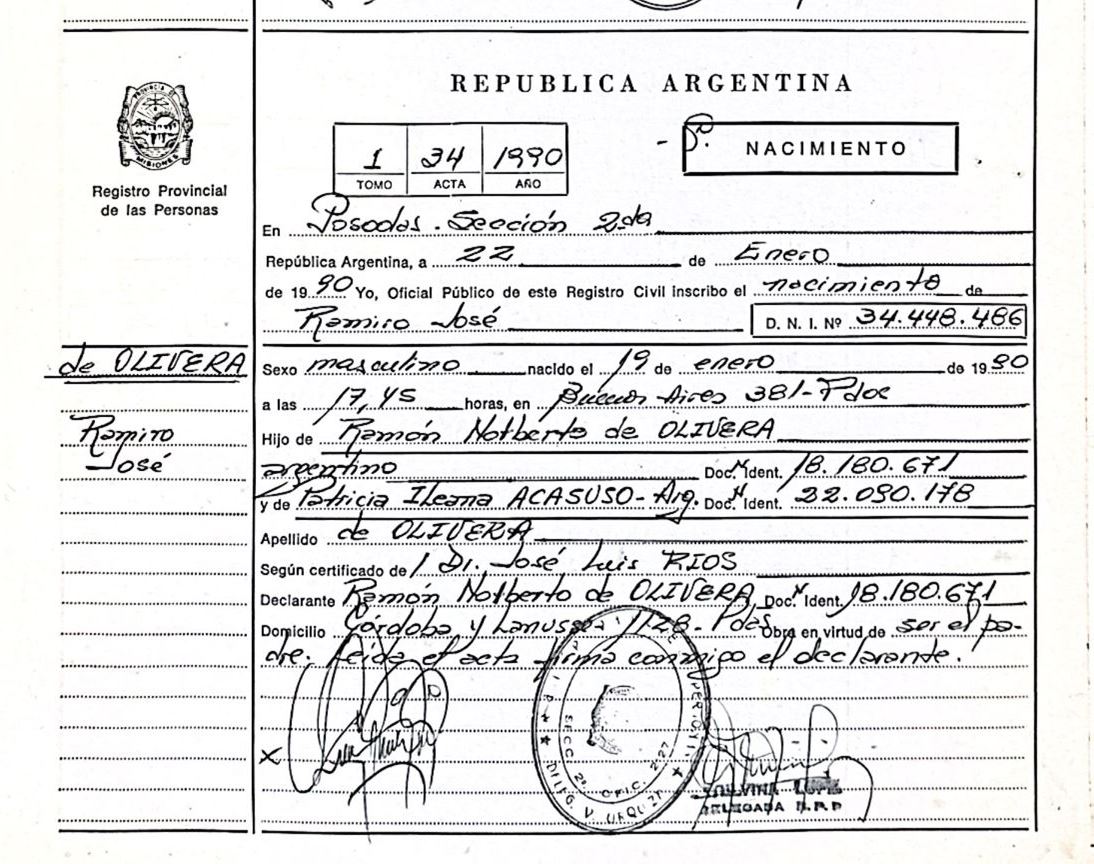 REPUBLICA ARGENTINA
PROVINCIA DE MISIONES
Registro Provincial
de las Personas
1 34 1990
TOMO ACTA AÑO
NACIMIENTO
En Posadas . Sección 2da
República Argentina, a 22 de Enero
de 1990 Yo, Oficial Público de este Registro Civil inscribo el nacimiento de
Ramiro José D. N. I. Nº 34.448.486
de OLIVERA
Ramiro
José
Sexo masculino nacido el 19 de enero de 1990
a las 17,45 horas, en Buenos Aires 381-Pdas
Hijo de Ramón Norberto de OLIVERA
argentino Doc. Ident. 18.180.671
y de Patricia Ileana ACASUSO- Arg. Doc. Ident. 22.090.178
Apellido de OLIVERA
Según certificado de / Dr. José Luis RIOS
Declarante Ramón Norberto de OLIVERA Doc. Ident. 18.180.671
Domicilio Córdoba y Lanusse 1128. Pdas Obra en virtud de ser el pa-
dre. Leída el acta firma conmigo el declarante.
X
SECC. 2ª OFIC. 227
DELEG. V. URQUIZA
DELEGADA R.P.P